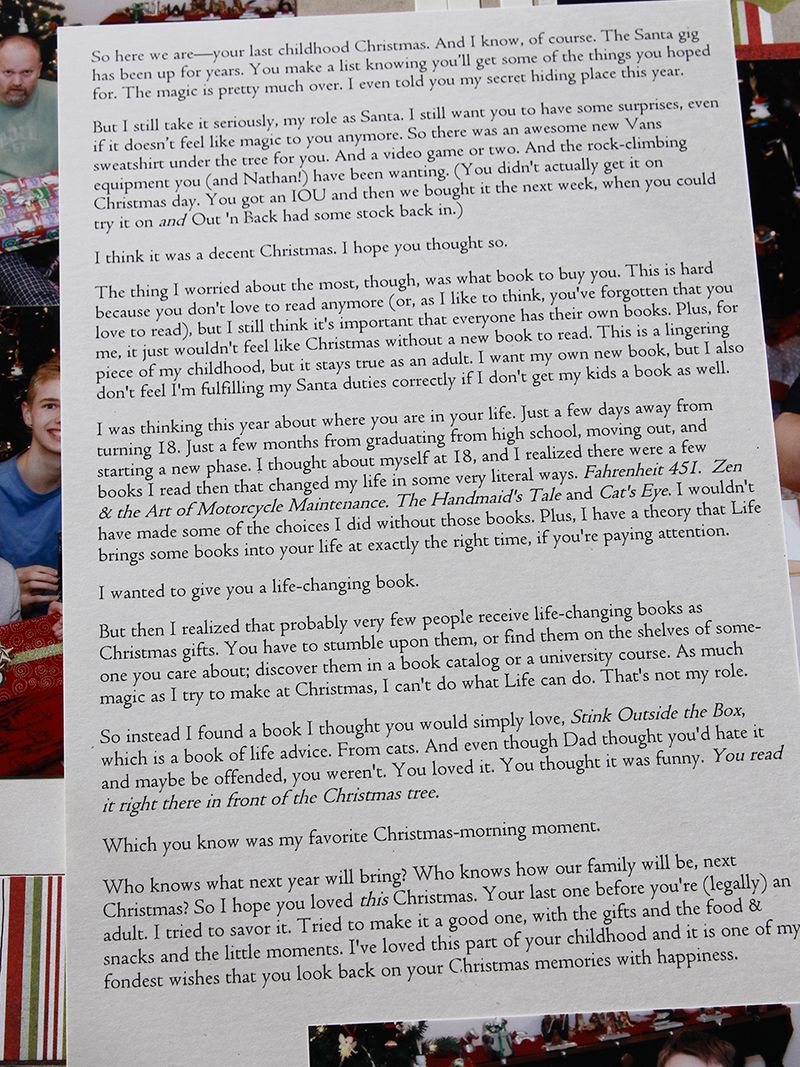 So here we are—your last childhood Christmas. And I know, of course. The Santa gig
has been up for years. You make a list knowing you'll get some of the things you hoped
for. The magic is pretty much over. I even told you my secret hiding place this year.
But I still take it seriously, my role as Santa. I still want you to have some surprises, even
if it doesn't feel like magic to you anymore. So there was an awesome new Vans
sweatshirt under the tree for you. And a video game or two. And the rock-climbing
equipment you (and Nathan!) have been wanting. (You didn't actually get it on
Christmas day. You got an IOU and then we bought it the next week, when you could
try it on and Out 'n Back had some stock back in.)
I think it was a decent Christmas. I hope you thought so.
The thing I worried about the most, though, was what book to buy you. This is hard
because you don't love to read anymore (or, as I like to think, you've forgotten that you
love to read), but I still think it's important that everyone has their own books. Plus, for
me, it just wouldn't feel like Christmas without a new book to read. This is a lingering
piece of my childhood, but it stays true as an adult. I want my own new book, but I also
don't feel I'm fulfilling my Santa duties correctly if I don't get my kids a book as well.
I was thinking this year about where you are in your life. Just a few days away from
turning 18. Just a few months from graduating from high school, moving out, and
starting a new phase. I thought about myself at 18, and I realized there were a few
books I read then that changed my life in some very literal ways. Fahrenheit 451. Zen
& the Art of Motorcycle Maintenance. The Handmaid's Tale and Cat's Eye. I wouldn't
have made some of the choices I did without those books. Plus, I have a theory that Life
brings some books into your life at exactly the right time, if you're paying attention.
I wanted to give you a life-changing book.
But then I realized that probably very few people receive life-changing books as
Christmas gifts. You have to stumble upon them, or find them on the shelves of some-
one you care about; discover them in a book catalog or a university course. As much
magic as I try to make at Christmas, I can't do what Life can do. That's not my role.
So instead I found a book I thought you would simply love, Stink Outside the Box,
which is a book of life advice. From cats. And even though Dad thought you'd hate it
and maybe be offended, you weren't. You loved it. You thought it was funny. You read
it right there in front of the Christmas tree.
Which you know was my favorite Christmas-morning moment.
Who knows what next year will bring? Who knows how our family will be, next
Christmas? So I hope you loved this Christmas. Your last one before you're (legally) an
adult. I tried to savor it. Tried to make it a good one, with the gifts and the food &
snacks and the little moments. I've loved this part of your childhood and it is one of my
fondest wishes that you look back on your Christmas memories with happiness.